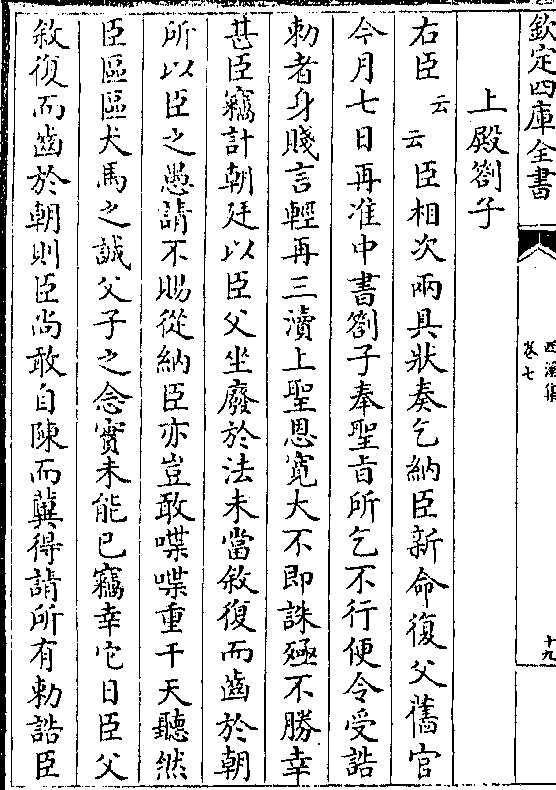 欽定四庫全書
西溪集
卷七
十九
上殿劄子
右臣云云臣相次兩具狀奏乞納臣新命復父舊官
今月七日再准中書劄子奉聖旨所乞不行便令受誥
勅者身賤言輕再三瀆上聖恩寛大不即誅殛不勝幸
甚臣竊計朝廷以臣父坐廢於法未當敘復而齒於朝
所以臣之愚請不賜從納臣亦豈敢喋喋重干天聽然
臣區區犬馬之誠父子之念實未能已竊幸它日臣父
敘復而齒於朝則臣尚敢自陳而冀得請所有勅誥臣